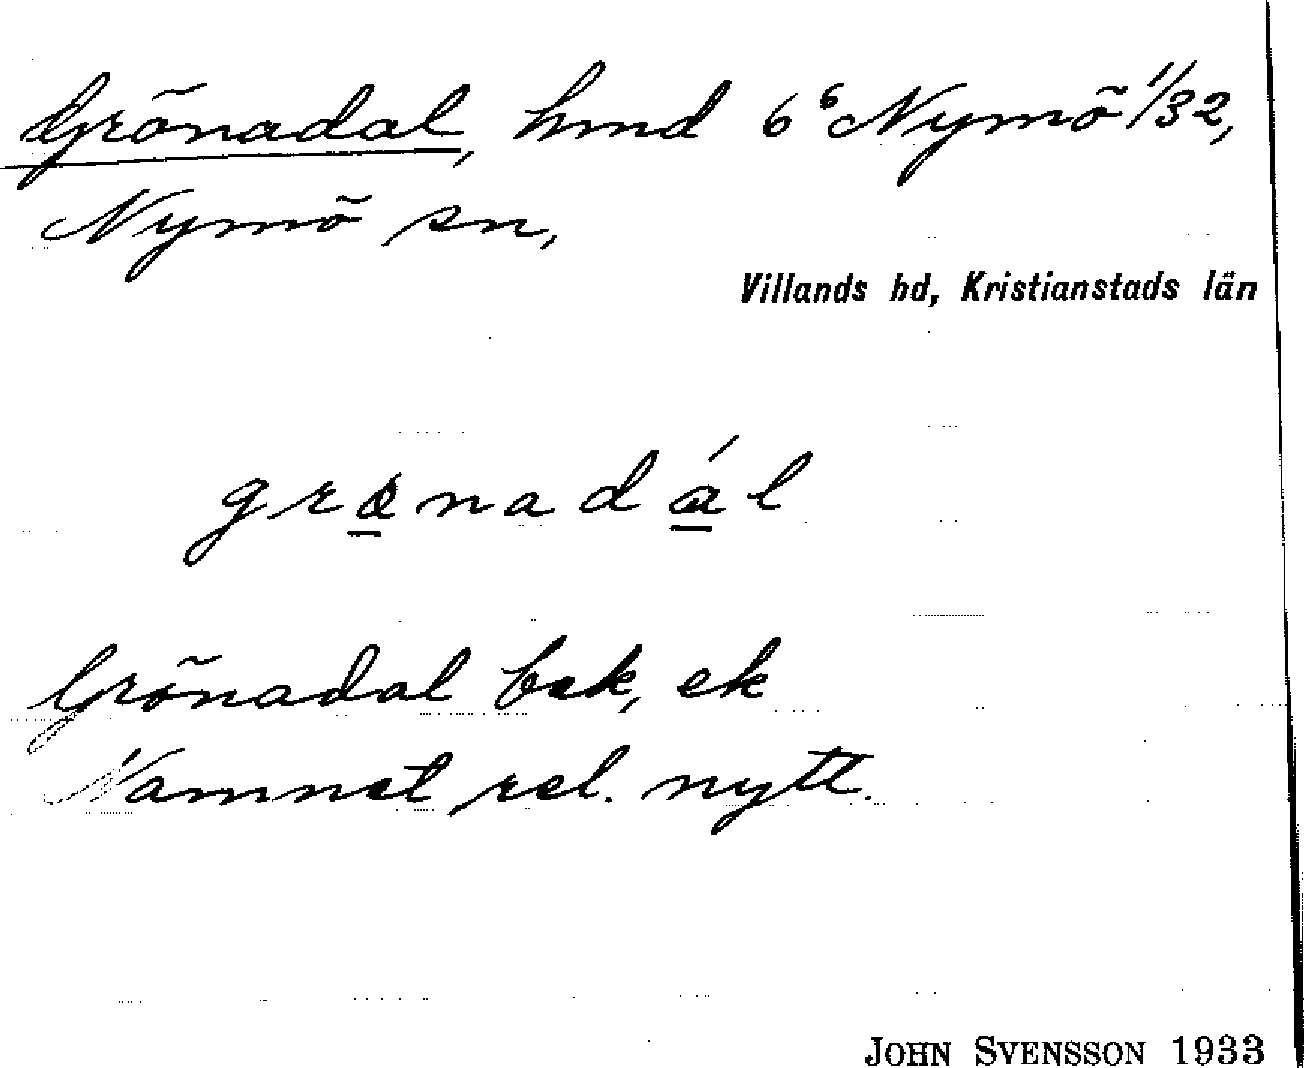 Grönadal, hmd 6⁶ Nymö 1/32,
Nymö sn,
Villands hd, Kristianstads län
grønadál
Grönadal bek, ek
Namnet rel. nytt.
JOHN SVENSSON 1933